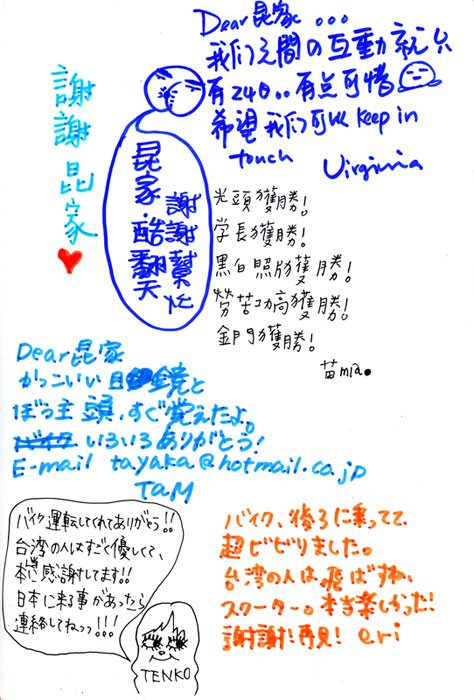 Dear昆家...
我们之間の互動就只
有24日..有点可惜
希望我们可以 keep in
touch
Virginia
謝謝昆家
昆家.酷翻天
謝謝幫忙
光頭獲勝!
学長獲勝!
黑白照版獲勝!
勞苦功高獲勝!
金門獲勝!
苗mia.
Dear昆家
かっこいい 鏡と
ぼう主頭、すぐ覚えたよ。
バイク いろいろありがとう!
E-mail tayaka@hotmail.co.jp
TaM
バイク運転してくれてありがとう!!
台湾の人はすごく優しくて、
本当に感謝してます!!
日本に来る事があったら
連絡してねっっ!!!
TENKO
バイク、後ろに乗ってて
超ビビりました。
台湾の人は飛ばすね、
スクーター。本当楽しかった!
謝謝!再見! eri